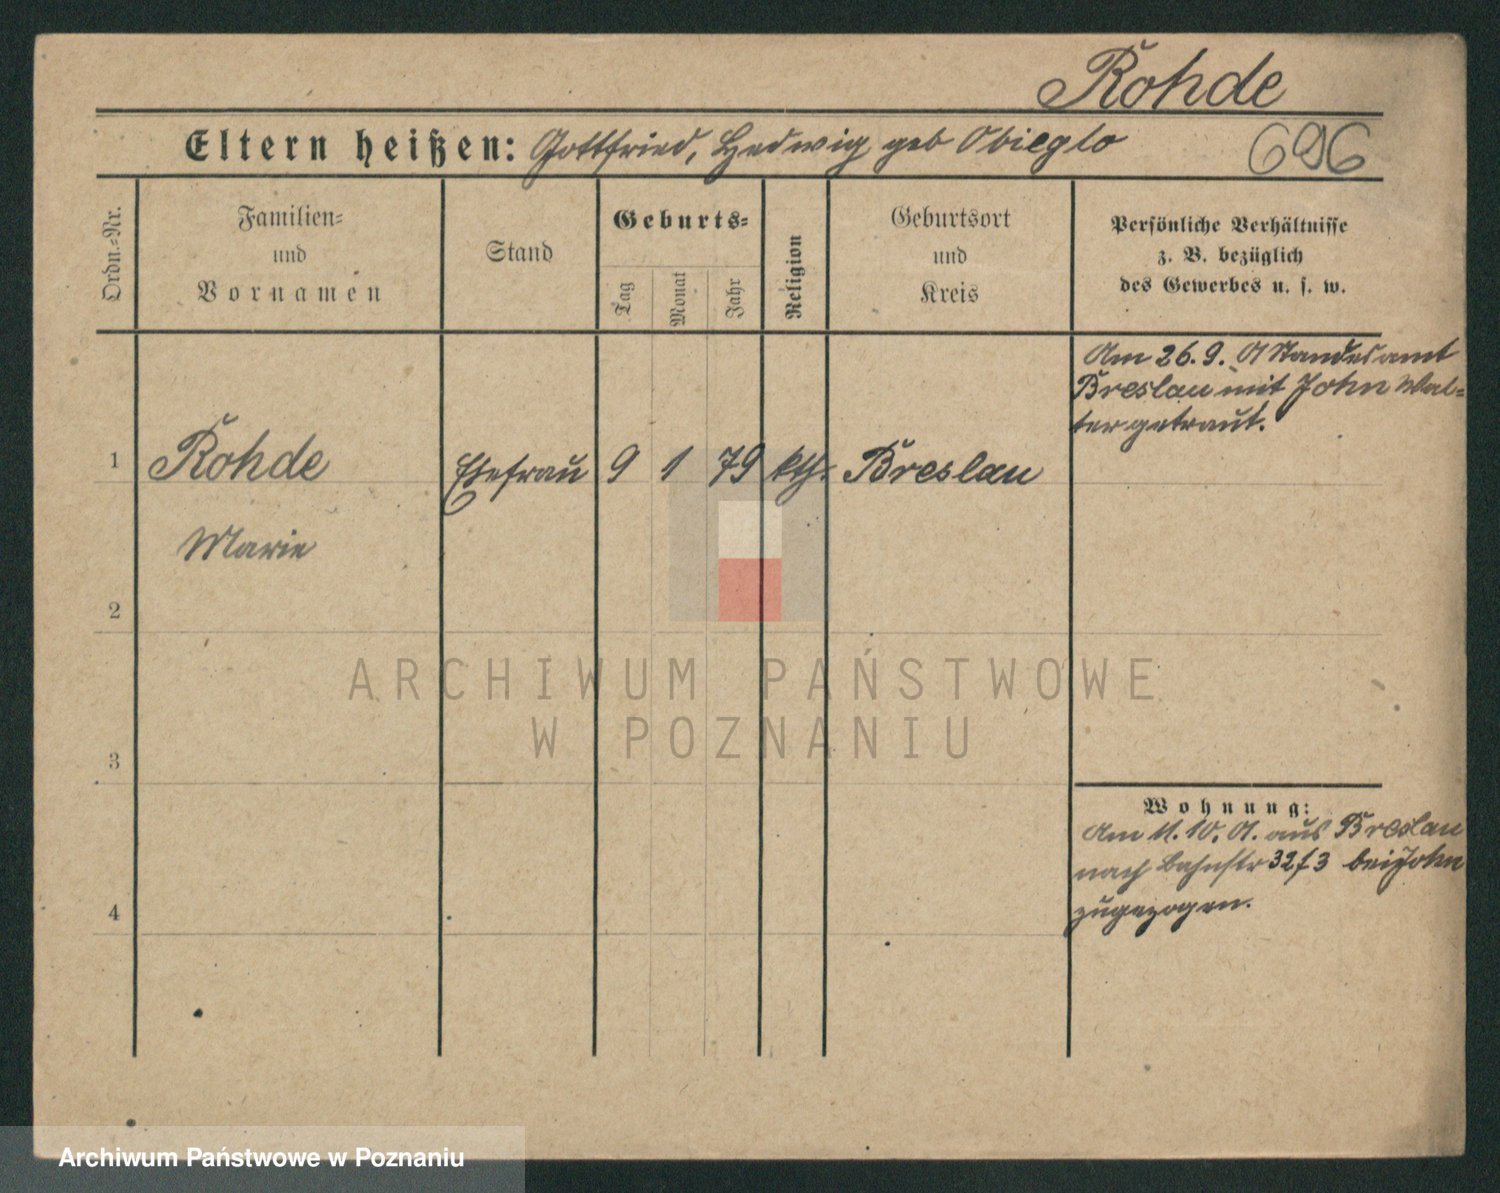 Rohde
Eltern heißen: Gottfried, Hedwig geb Obieglo
696
Ordn.-Nr.
Familien-
und
Vornamen
Stand
Geburts-
Tag
Monat
Jahr
Religion
Geburtsort
und
Kreis
Persönliche Verhältnisse
z. B. bezüglich
des Gewerbes u. s. w.
Am 26.9. 01 Standesamt
Breslau mit John Wal-
ter getraut.
1 Rohde Ehefrau 9 1 79 kth. Breslau
Marie
2
ARCHIWUM PAŃSTWOWE
W POZNANIU
3
Wohnung:
Am 11.10.01. aus Breslau
nach Bahnstr 32/3 bei John
zugezogen.
4
Archiwum Państwowe w Poznaniu